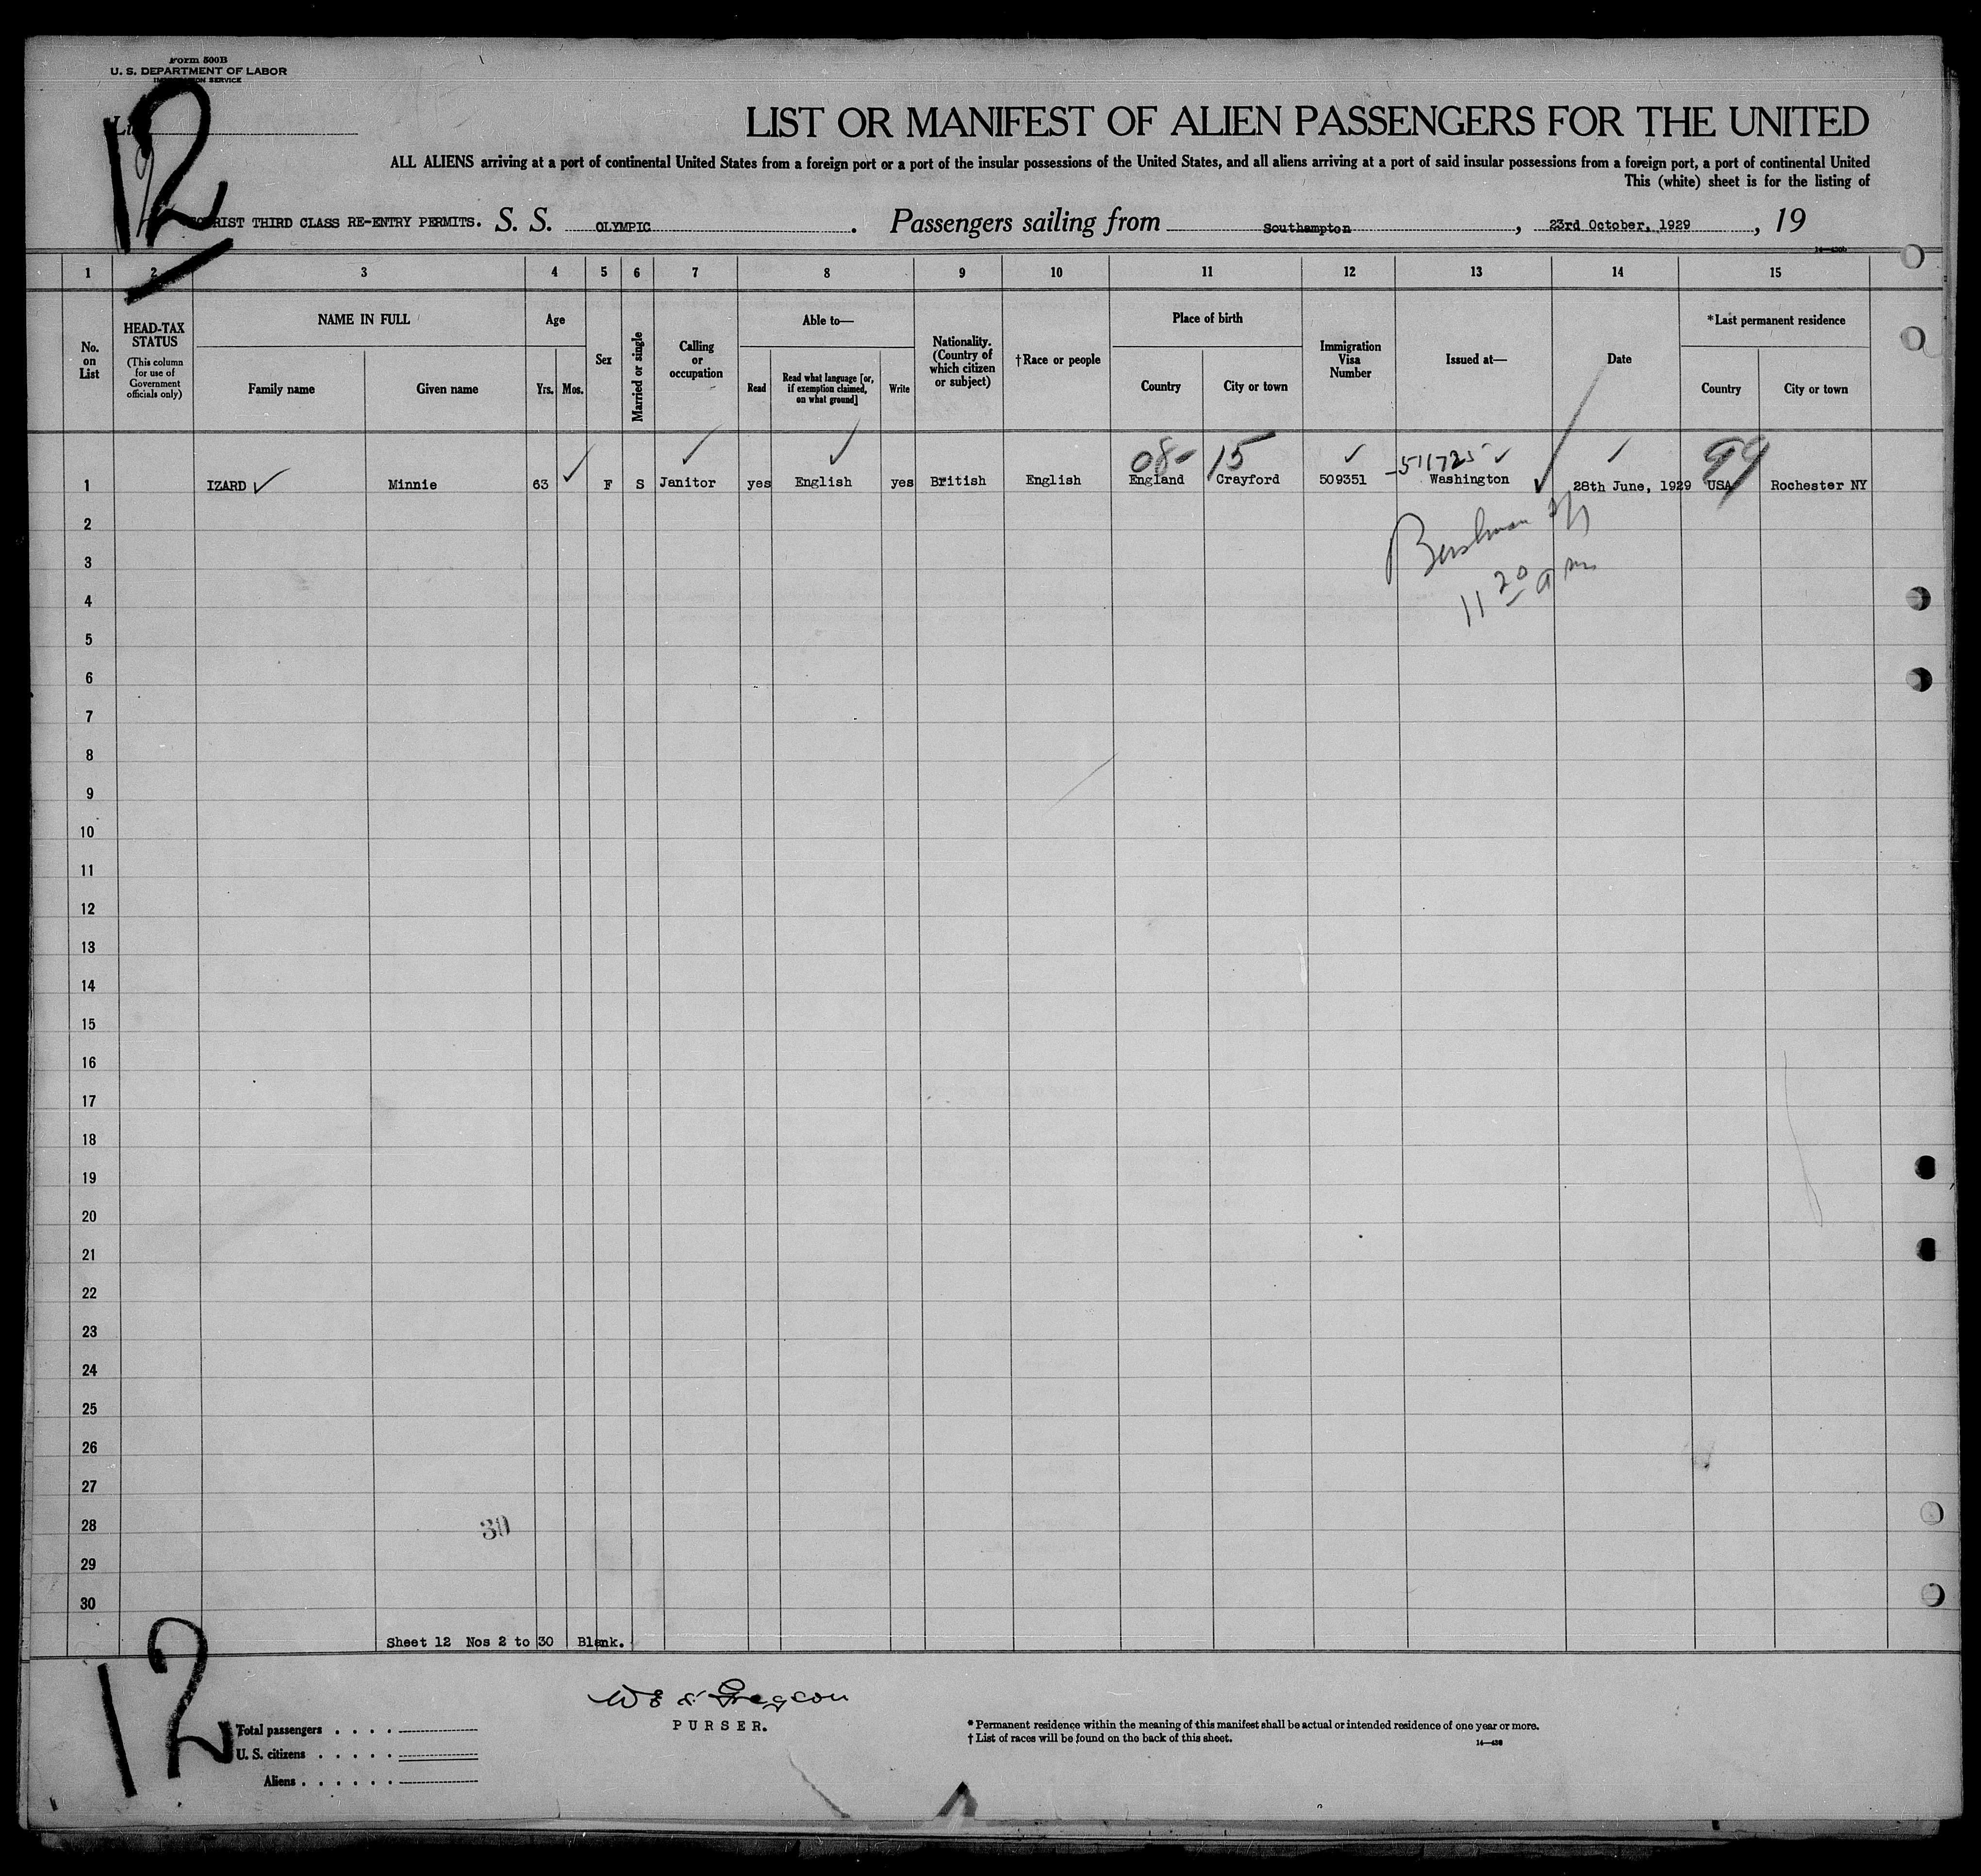 Form 500B
U. S. DEPARTMENT OF LABOR
IMMIGRATION SERVICE
12
LIST OR MANIFEST OF ALIEN PASSENGERS FOR THE UNITED
ALL ALIENS arriving at a port of continental United States from a foreign port or a port of the insular possessions of the United States, and all aliens arriving at a port of said insular possessions from a foreign port, a port of continental United
This (white) sheet is for the listing of
TOURIST THIRD CLASS RE-ENTRY PERMITS. S. S. OLYMPIC . Passengers sailing from Southampton , 23rd October, 1929 , 19
1 2 3 4 5 6 7 8 9 10 11 12 13 14 15
No. on List
HEAD-TAX STATUS
(This column for use of Government officials only)
NAME IN FULL
Family name
Given name
Age
Yrs. Mos.
Sex
Married or single
Calling or occupation
Able to—
Read
Read what language [or, if exemption claimed, on what ground]
Write
Nationality. (Country of which citizen or subject)
†Race or people
Place of birth
Country
City or town
Immigration Visa Number
Issued at—
Date
*Last permanent residence
Country
City or town
08- 15 -511725 99
1 IZARD Minnie 63 F S Janitor yes English yes British English England Crayford 509351 Washington 28th June, 1929 USA Rochester NY
11 20 am
2
3
4
5
6
7
8
9
10
11
12
13
14
15
16
17
18
19
20
21
22
23
24
25
26
27
28
30
29
30
Sheet 12 Nos 2 to 30 Blank.
12
Gregson
PURSER.
Total passengers . . . .
U. S. citizens . . . . .
Aliens . . . . . .
* Permanent residence within the meaning of this manifest shall be actual or intended residence of one year or more.
† List of races will be found on the back of this sheet.
14—438